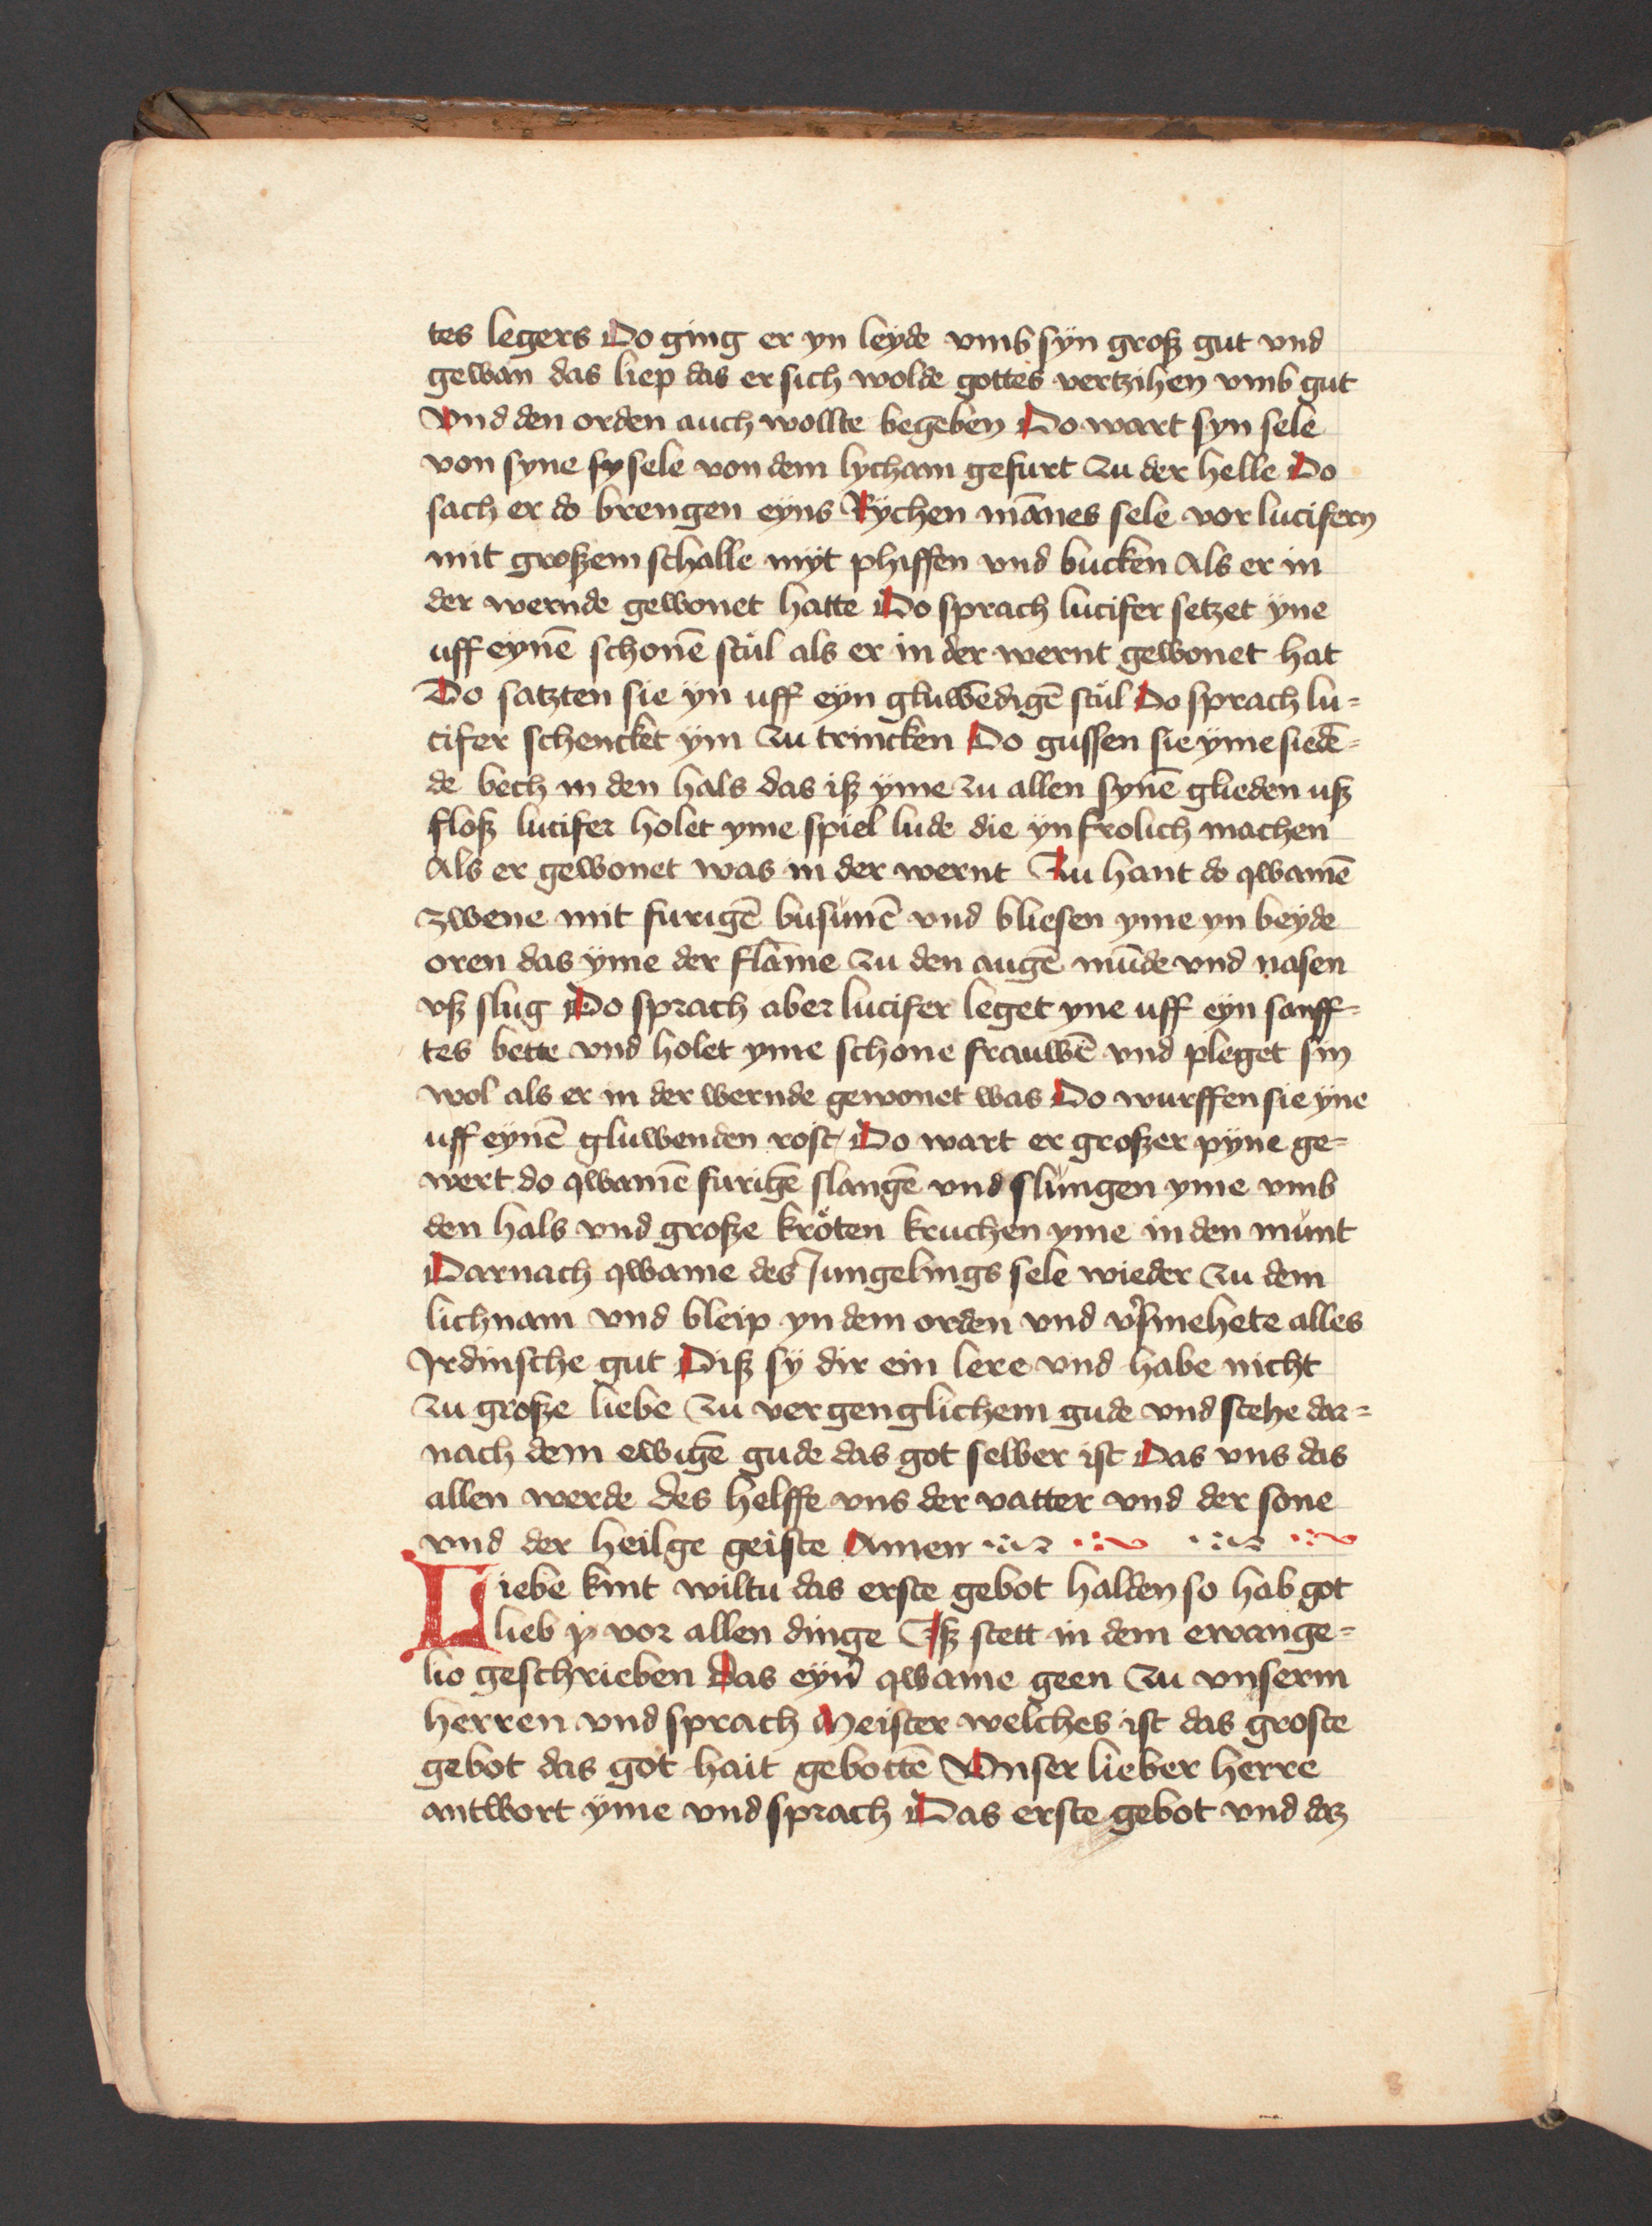 tes legers Do ging er yn leyde vmb syn groß gut vnd
gewan das liep das er sich wolde gottes vertzihen vmb gut
Vnd den orden auch wollte begeben Do wart syn sele
von syne sy sele von dem lycham gefurt zu der helle Do
sach er do brengen eyns Rychen mānes sele vor lucifern
mit großem schalle myt phiffen vnd bucken Als er in
der wernde gewonet hatte Do sprach lucifer setzet ÿne
uff eynē schonē stůl als er in der wernt gewonet hat
Do satzten sie ÿn uff eyn gluwēdigē stůl Do sprach lu=
cifer schencket ÿm zu trincken Do gussen sie ÿme siedē=
de bech in den hals das iß ÿme zu allen synē glieden uß
floß lucifer holet yme spiel lude die ÿn frolich machen
Als er gewonet was in der wernt Zu hant do qwamē
zwene mit furigē busunē vnd bliesen yme yn beyde
oren das ÿme der flāme zu den augē mūde vnd nasen
vß slug Do sprach aber lucifer leget yne uff eyn sanff=
tes bette vnd holet yme schone frauwē vnd pleget sin
wol als er in der wernde gewonet was Do wurffen sie ÿne
uff eynē gluwenden rost Do wart er großer pyne ge=
wert do qwamē furigē slangē vnd slůngen yme vmb
den hals vnd große kröten kruchen yme in den můnt
Darnach qwame des Jungelings sele wieder zu dem
lichnam vnd bleip yn dem orden vnd v͛smehete alles
Jrdinsche gut Diß sÿ dir ein lere vnd habe nicht
zu große liebe zu vergenglichem gude vnd stehe dar=
nach dem ewigē gude das got selber ist Das vns das
allen werde des helffe vns der vatter vnd der sone
vnd der heilge geiste Amen
Liebe kint wiltu das erste gebot halden so hab got
lieb vor allen dinge Iß stett in dem ewange=
lio geschrieben Das eyn͛ qwame geen zu vnserm
herren vnd sprach Meister welches ist das groste
gebot das got hait gebottē Vnser lieber herre
antwort ÿme vnd sprach Das erste gebot vnd daz